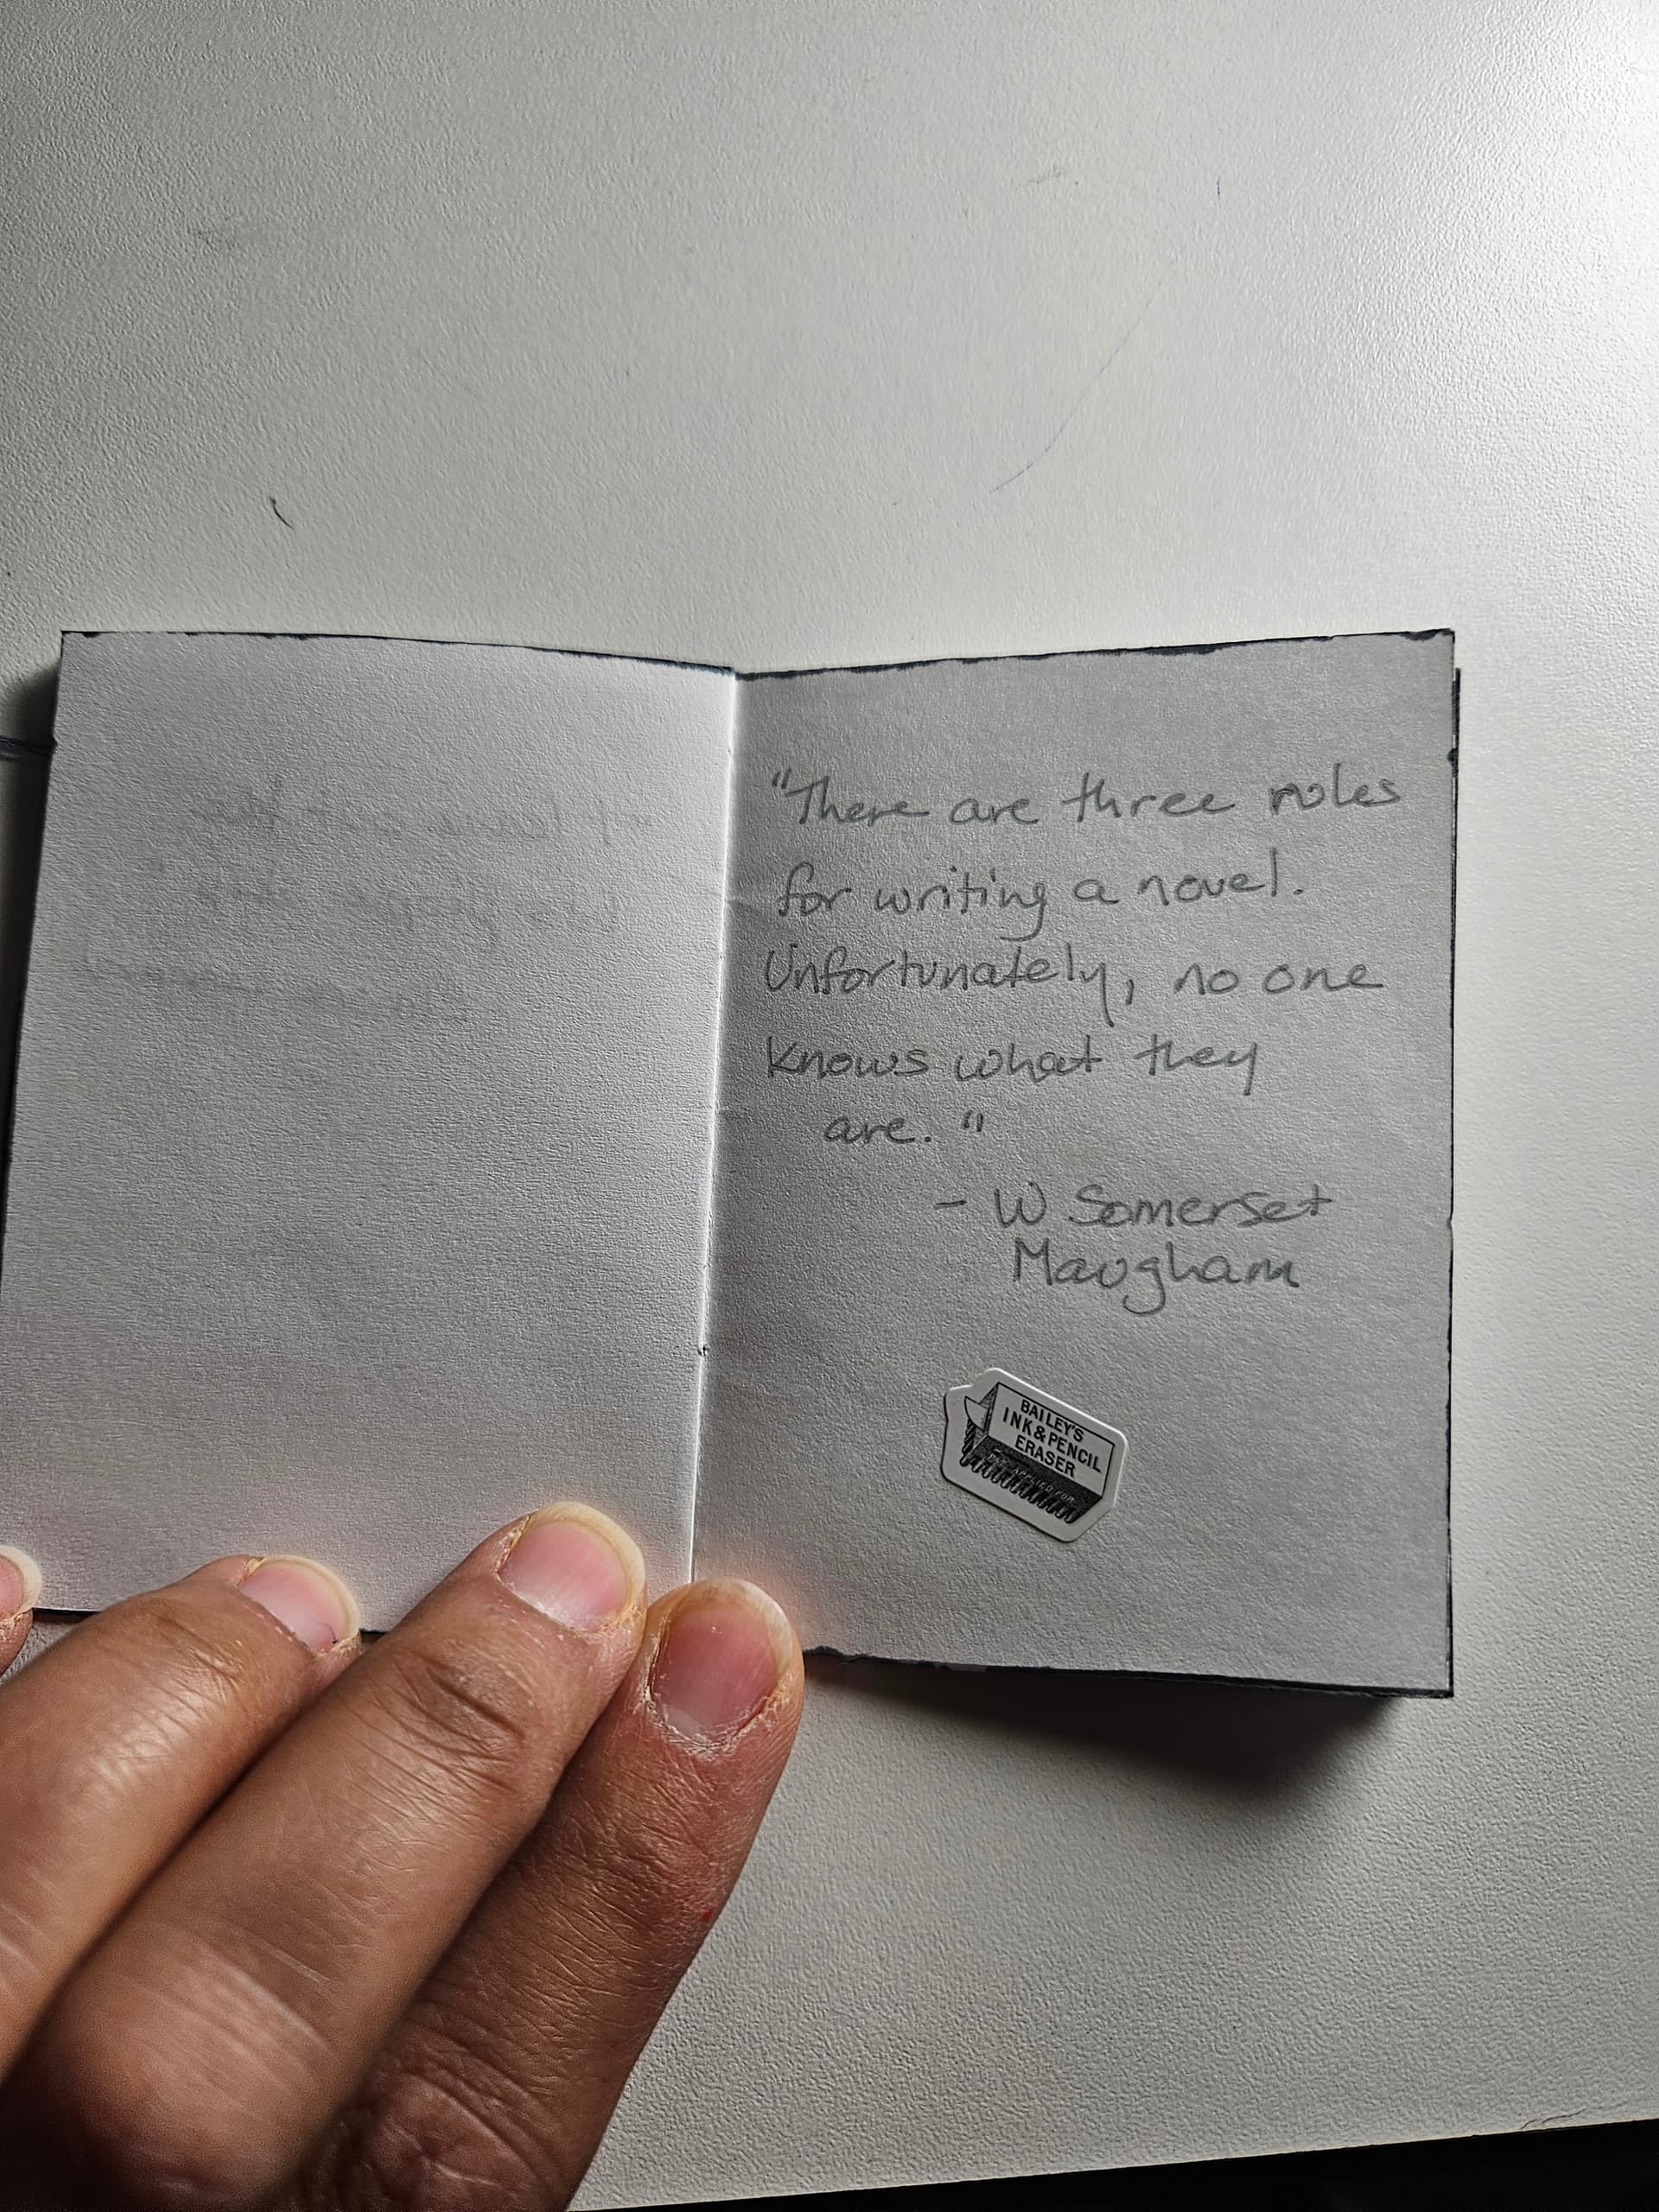 "There are three rules
for writing a novel.
Unfortunately, no one
knows what they
are."
- W Somerset
Maugham
BAILEY'S
INK & PENCIL
ERASER